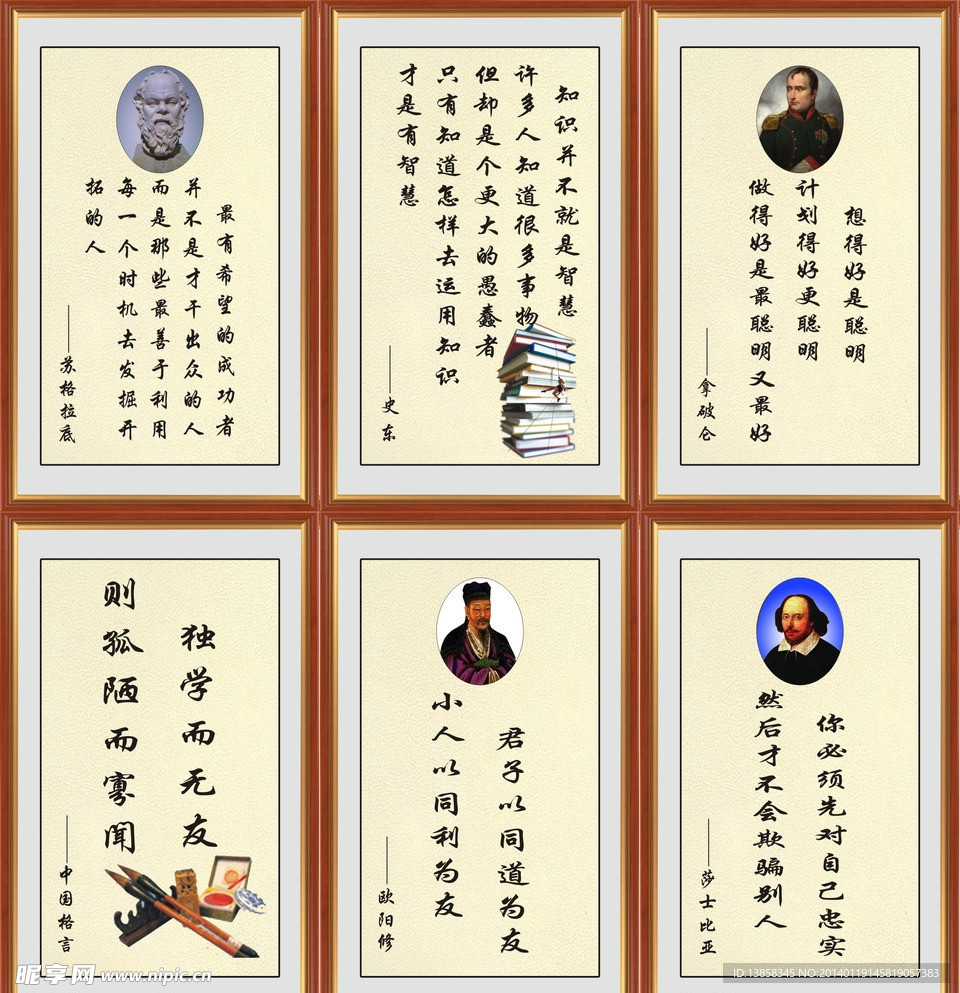 最有希望的成功者
并不是才干出众的人
而是那些最善于利用
每一个时机去发掘开
拓的人
——苏格拉底
知识并不就是智慧
许多人知道很多事物
但却是个更大的愚蠢者
只有知道怎样去运用知识
才是有智慧
——史东
想得好是聪明
计划得好更聪明
做得好是最聪明又最好
——拿破仑
独学而无友
则孤陋而寡闻
——中国格言
君子以同道为友
小人以同利为友
——欧阳修
你必须先对自己忠实
然后才不会欺骗别人
——莎士比亚
昵享网 www.nipic.cn
ID:13858345 NO:20140119145819057383